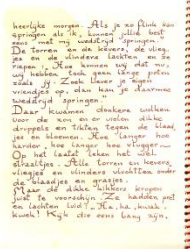 heerlijke morgen. Als je zo flink kan
springen als ik, kunnen jullie best
eens met mij wedstrijd springen.
De torren en de kevers, de vlieg-
jes en de vlinders lachten en ze
riepen: Hoe kunnen wij dat nu,
wij hebben toch geen lange poten
zoals jij. Zoek liever je eigen
vriendjes op, dan kan je daarmee
wedstrijd springen.
Daar kwamen donkere wolken
voor de zon en er vielen dikke
druppels en tikten tegen de blaad-
jes en bloemen. Hoe langer hoe
harder, hoe langer hoe vlugger
Op het laatst leken het wel
straaltjes. Alle torren en kevers,
vliegjes en vlinders vluchtten onder
de blaadjes en grasjes.
Maar de dikke kikkers kropen
juist te voorschijn. Ze hadden pret
en lachten luid. Ha, ha, kwak-
kwek! Kijk die eens bang zijn,